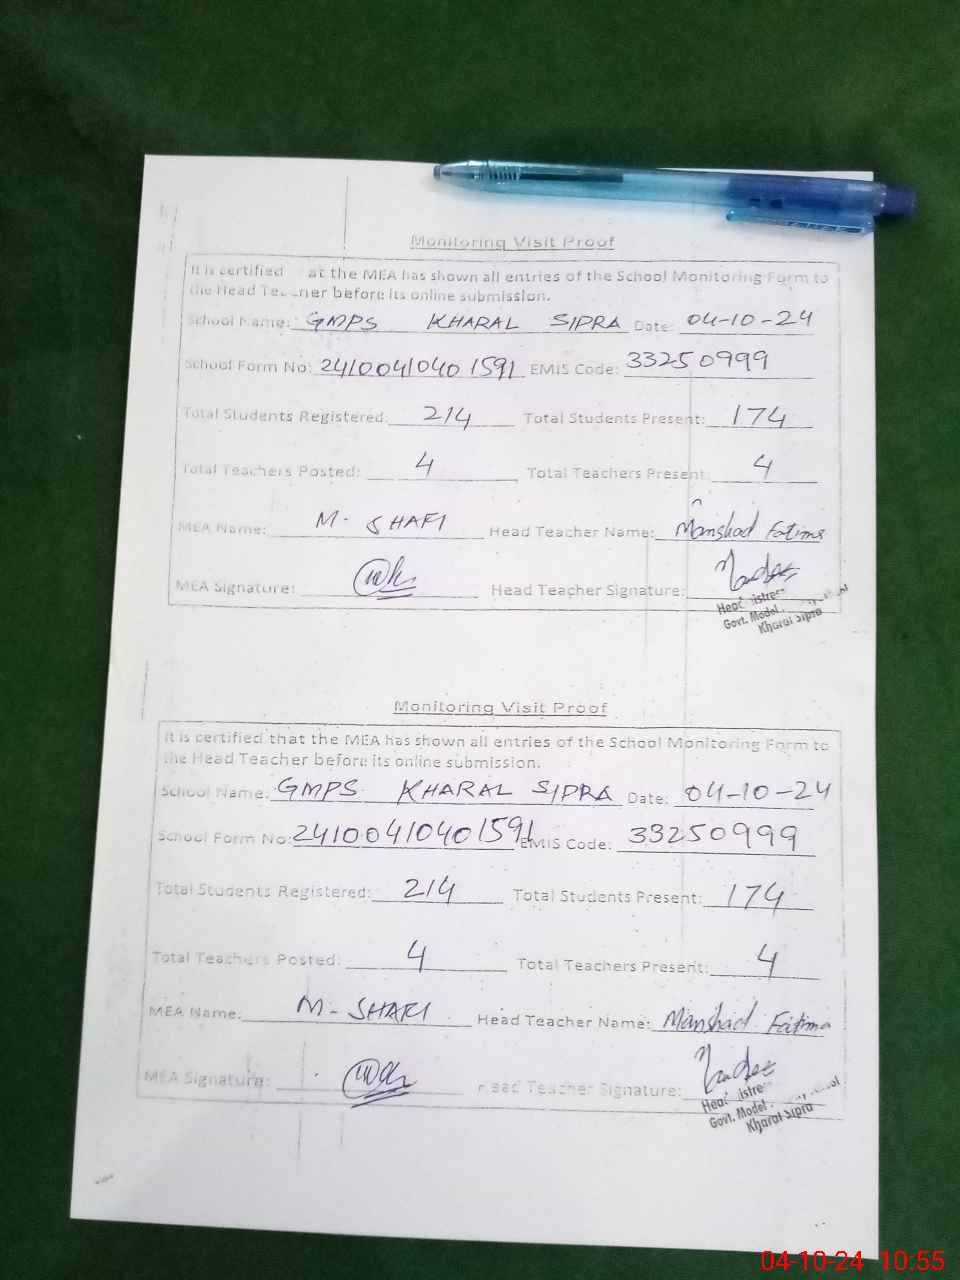 Monitoring Visit Proof
It is certified at the MEA has shown all entries of the School Monitoring Form to
the Head Teacher before its online submission.
School Name: GMPS KHARAL SIPRA Date: 04-10-24
School Form No: 2410041040 1591 EMIS Code: 33250999
Total Students Registered: 214 Total Students Present: 174
Total Teachers Posted: 4 Total Teachers Present: 4
MEA Name: M. SHAFI Head Teacher Name: Manshad Fatima
MEA Signature: Head Teacher Signature:
Govt. Model
Kharal Sipra
Monitoring Visit Proof
It is certified that the MEA has shown all entries of the School Monitoring Form to
the Head Teacher before its online submission.
School Name: GMPS KHARAL SIPRA Date: 04-10-24
School Form No: 24100410401591 EMIS Code: 33250999
Total Students Registered: 214 Total Students Present: 174
Total Teachers Posted: 4 Total Teachers Present: 4
MEA Name: M- SHAFI Head Teacher Name: Manshad Fatima
MEA Signature: Head Teacher Signature:
Govt. Model
Kharal Sipra
04-10-24 10:55